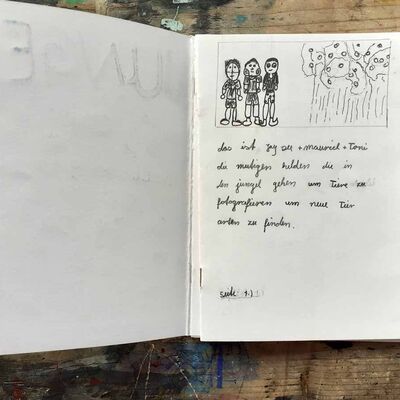 das ist jay see + mauriel + toni
die mutigen helden die in
den jungel gehen um tiere zu
fotografieren um neue tier
arten zu finden.
seite 1.)